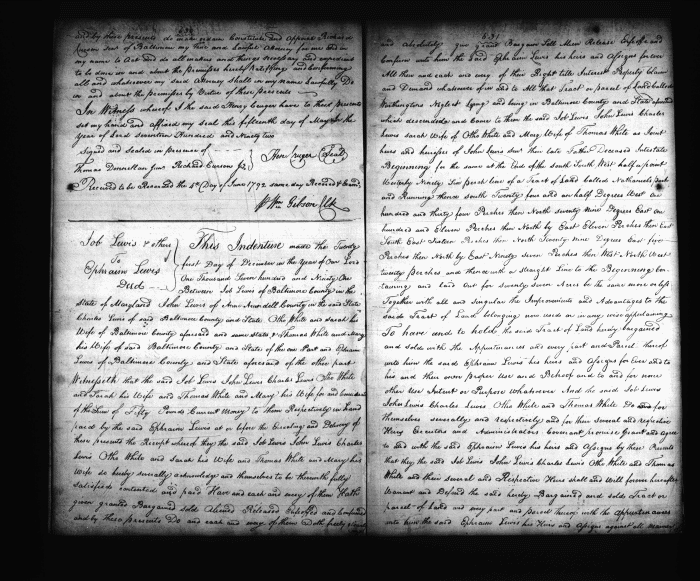 and by these presents do make name Constitute and Appoint Richard
Curson Junr of Baltimore my true and Lawful Attorney for me and in
my name to Act and do all matters and things necessary and expedient
to be done in and about the premises hereby Ratifying and Confirming
all and whatsoever my said Attorney shall in my name Lawfully Do
in and about the premises by Virtue of these presents
In Witness whereof I the said Henry Cruger have to these presents
set my hand and affixed my seal this fifteenth day of May in the
year of Lord seventeen Hundred and Ninety two
Signed and sealed in presence of
Thomas Donnellan Junr Richard Curson Jr Hen: Cruger (Seal)
Received to be Recorded the 5th Day of June 1792 same day Recorded & Exmd
Wm Gibson Clk
Job Lewis & others
To
Ephraim Lewis
Deed
This Indenture made the Twenty
first Day of December in the Year of Our Lord
One Thousand Seven hundred and Ninety One
Between Job Lewis of Baltimore County in the
State of Maryland John Lewis of Ann Arundell County in the said State
Charles Lewis of said Baltimore County and State Otho White and Sarah his
Wife of Baltimore County aforesaid and same State & Thomas White and Mary
his Wife of said Baltimore County and State of the one Part and Ephraim
Lewis of Baltimore County and State aforesaid of the other part
Witnesseth that the said Job Lewis John Lewis Charles Lewis Otho White
and Sarah his Wife and Thomas White and Mary his Wife for and in consideration
of the Sum of Fifty Pounds Current Money to them Respectively in hand
paid by the said Ephraim Lewis at or before the Ensealing and Delivery of
these presents the Receipt whereof they the said Job Lewis John Lewis Charles
Lewis Otho White and Sarah his Wife and Thomas White and Mary his
Wife do hereby severally acknowledge and themselves to be therewith fully
Satisfied contented and paid Have and each and every of them Hath
given granted Bargained sold Aliened Released Enfeoffed and Confirmed
and by these presents Do and each and every of them Doth freely
531
and absolutely give grant Bargain Sell Alien Release Enfeoff and
Confirm unto him the said Ephraim Lewis his heirs and Assigns forever
All their and each and every of their Right title Interest Property Claim
and Demand whatsoever of in and to All that Tract or parcel of Land called
Lying and being in Baltimore County and State aforesaid
which descended and Came to them the said Job Lewis John Lewis Charles
Lewis Sarah Wife of Otho White and Mary Wife of Thomas White as Joint
heirs and heiresses of John Lewis their late Father Deceased Intestate
Beginning for the same at the End of the South South West half a point
Westerly Ninety Six perch line of a Tract of Land Called Nathaniels
and Running thence South Twenty four and an half Degrees West one
hundred and thirty four Perches then North seventy Nine Degrees East one
hundred and Eleven Perches then North by East Eleven Perches then East
South East Sixteen Perches then North Twenty Nine Degrees East five
Perches then North by East Ninety Seven Perches then West North West
twenty Perches and thence with a straight Line to the Beginning Con-
taining and laid out for twenty seven Acres be the same more or less
Together with all and singular the Improvements and Advantages to the
said Tract of Land belonging now used or in any wise appertaining
To have and to hold the said Tract of Land hereby bargained
and sold with the Appurtenances and every part and Parcel thereof
unto him the said Ephraim Lewis his heirs and Assigns for Ever and to
his and their own proper Use and Behoof and to and for none
other Use Intent or Purpose whatsoever And the said Job Lewis
John Lewis Charles Lewis Otho White and Thomas White Do for
themselves severally and respectively and for their several and respective
Heirs Executors and Administrators Covenant promise Grant and Agree
to and with the said Ephraim Lewis his heirs and Assigns by these Presents
that they the said Job Lewis John Lewis Charles Lewis Otho White and Thomas
White and their several and Respective Heirs shall and Will forever hereafter
Warrant and Defend the said hereby Bargained and sold Tract or
parcel of Land and every part and parcel thereof with the Appurtenances
unto him the said Ephraim Lewis his Heirs and Assigns against all manner